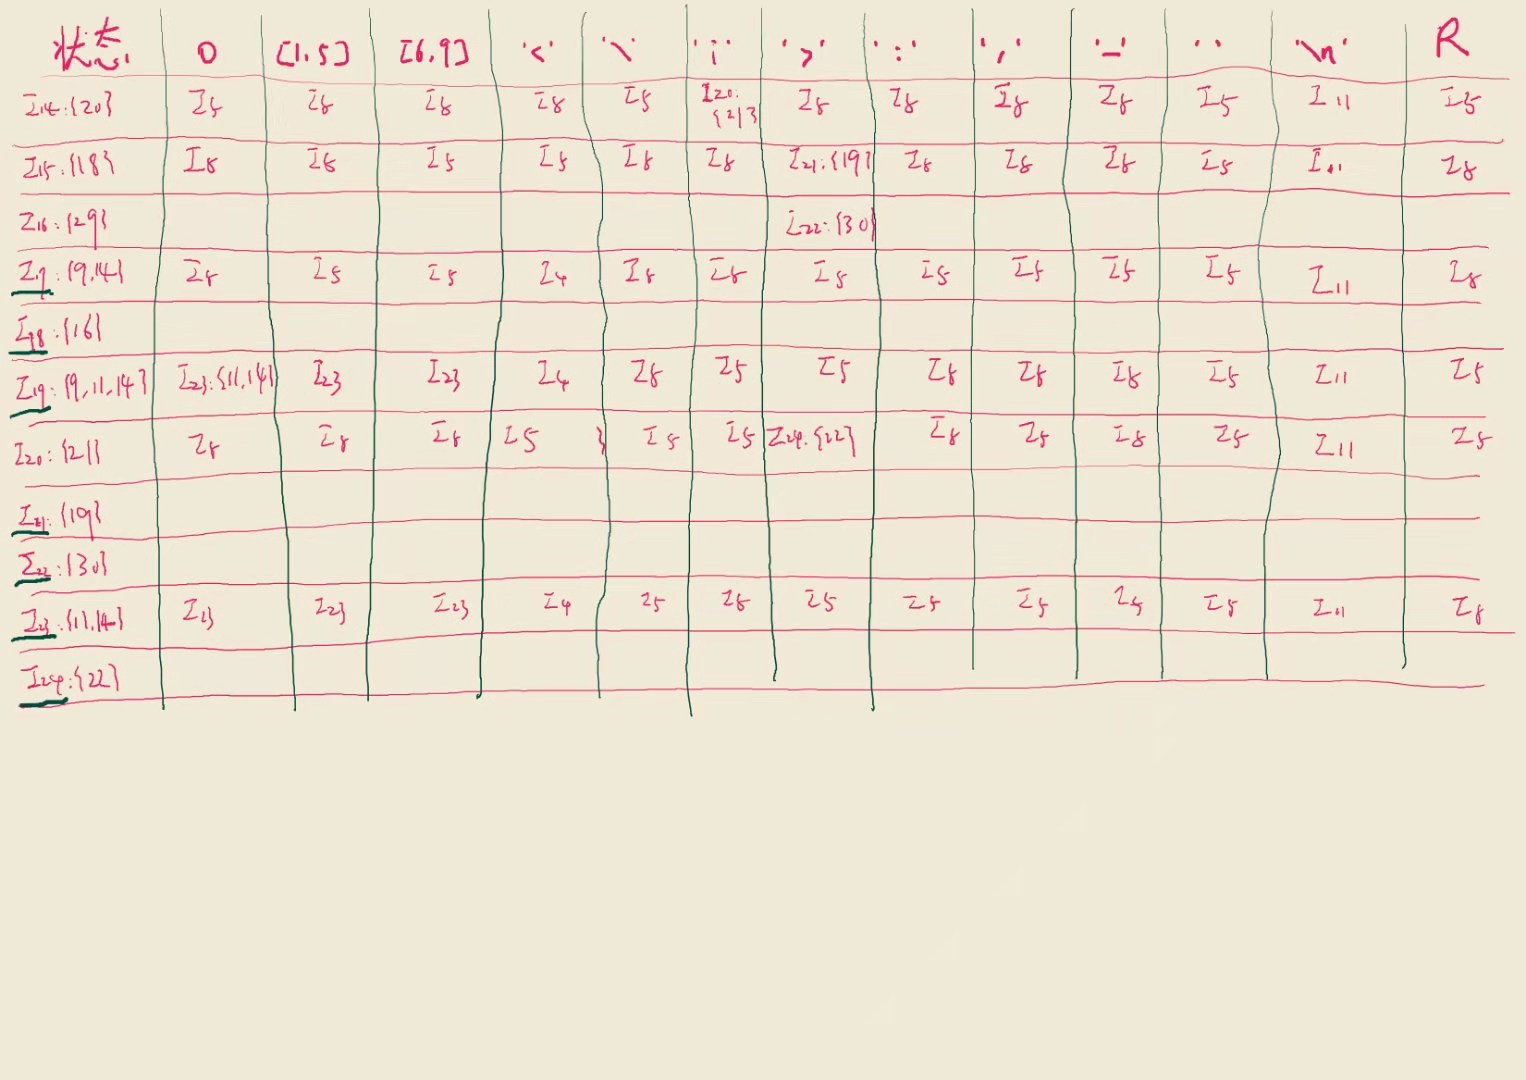 状态 0 [1,5] [6,9] '<' '\' '¡' '>' ':' ',' '-' ' ' '\n' R
I14:{20} I5 I5 I5 I5 I5 I20:{21} I5 I5 I5 I5 I5 I11 I5
I15:{18} I5 I5 I5 I5 I5 I5 I21:{19} I5 I5 I5 I5 I11 I5
I16:{29} I22:{30}
I17:{9,14} I5 I5 I5 I4 I5 I5 I5 I5 I5 I5 I5 I11 I5
I18:{16}
I19:{9,11,14} I23:{11,14} I23 I23 I4 I5 I5 I5 I5 I5 I5 I5 I11 I5
I20:{21} I5 I5 I5 I5 I5 I5 I24:{22} I5 I5 I5 I5 I11 I5
I21:{19}
I22:{30}
I23:{11,14} I23 I23 I23 I4 I5 I5 I5 I5 I5 I5 I5 I11 I5
I24:{22}